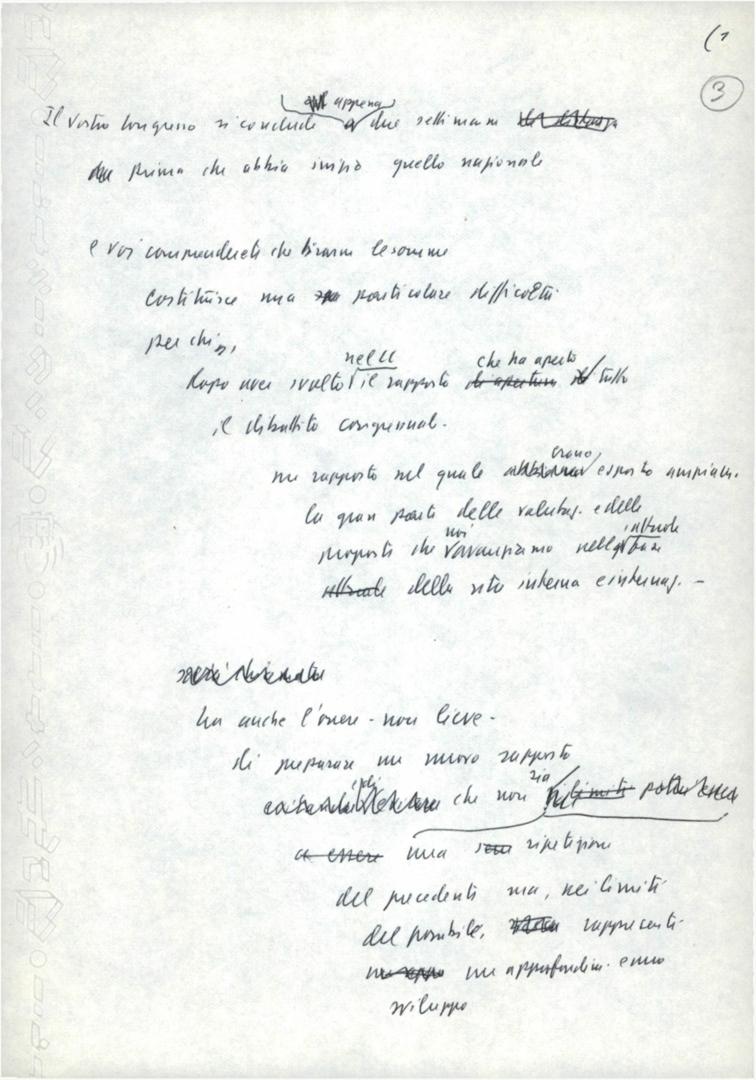 (1
3
appena
Il vostro Congresso si conclude a due settimane
prima che abbia inizio quello nazionale
e voi comprenderete che tirarne le somme
costituisce una particolare difficoltà
per chi,
nell
che ha aperto
dopo aver svolto il rapporto di apertura tutto
il dibattito congressual.
erano
un rapporto nel quale esposto ampiam.
la gran parte delle valutaz. e delle
noi attuale
proposte che avanziamo nella fase
attuale della vita interna e internaz. -
ha anche l'onere - non lieve -
di preparare un nuovo rapporto
sia
che non limiti
a essere una ripetizione
del precedente ma, nei limiti
del possibile, rappresenti
un approfondim. e uno
sviluppo